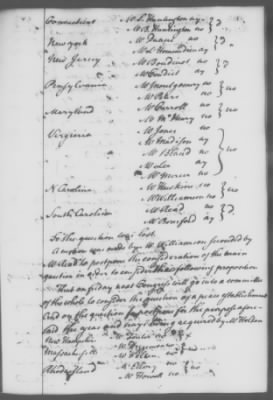 Connecticut Mr S. Huntington ay
Mr B. Huntington no } d.
New York Mr Duane no
Mr L'Hommedieu ay } d.
New Jersey Mr Boudinot no
Mr Condict ay } d.
Pensylvania Mr Montgomery no
Mr Peters no } no
Maryland Mr Carroll no
Mr McHenry no } no
Virginia Mr Jones no
Mr Madison ay
Mr Bland no } no
Mr Lee ay
Mr Mercer no
N Carolina Mr Hawkins no
Mr Williamson no } no
South Carolina Mr Read no
Mr Beresford ay } d.
So the question was lost.
A motion was made by Mr Williamson seconded by
Mr Read to postpone the consideration of the main
question in order to consider the following proposition
That on friday next Congress will go into a committee
of the whole to consider the question of a peace establishment
And on the question to postpone for the purpose afore
said the yeas and nays being required by Mr Holten
New Hampshire Mr no } x
Massachusetts Mr no
Mr Holten no } no
Rhodeisland Mr Ellery no
Mr Howell no } no